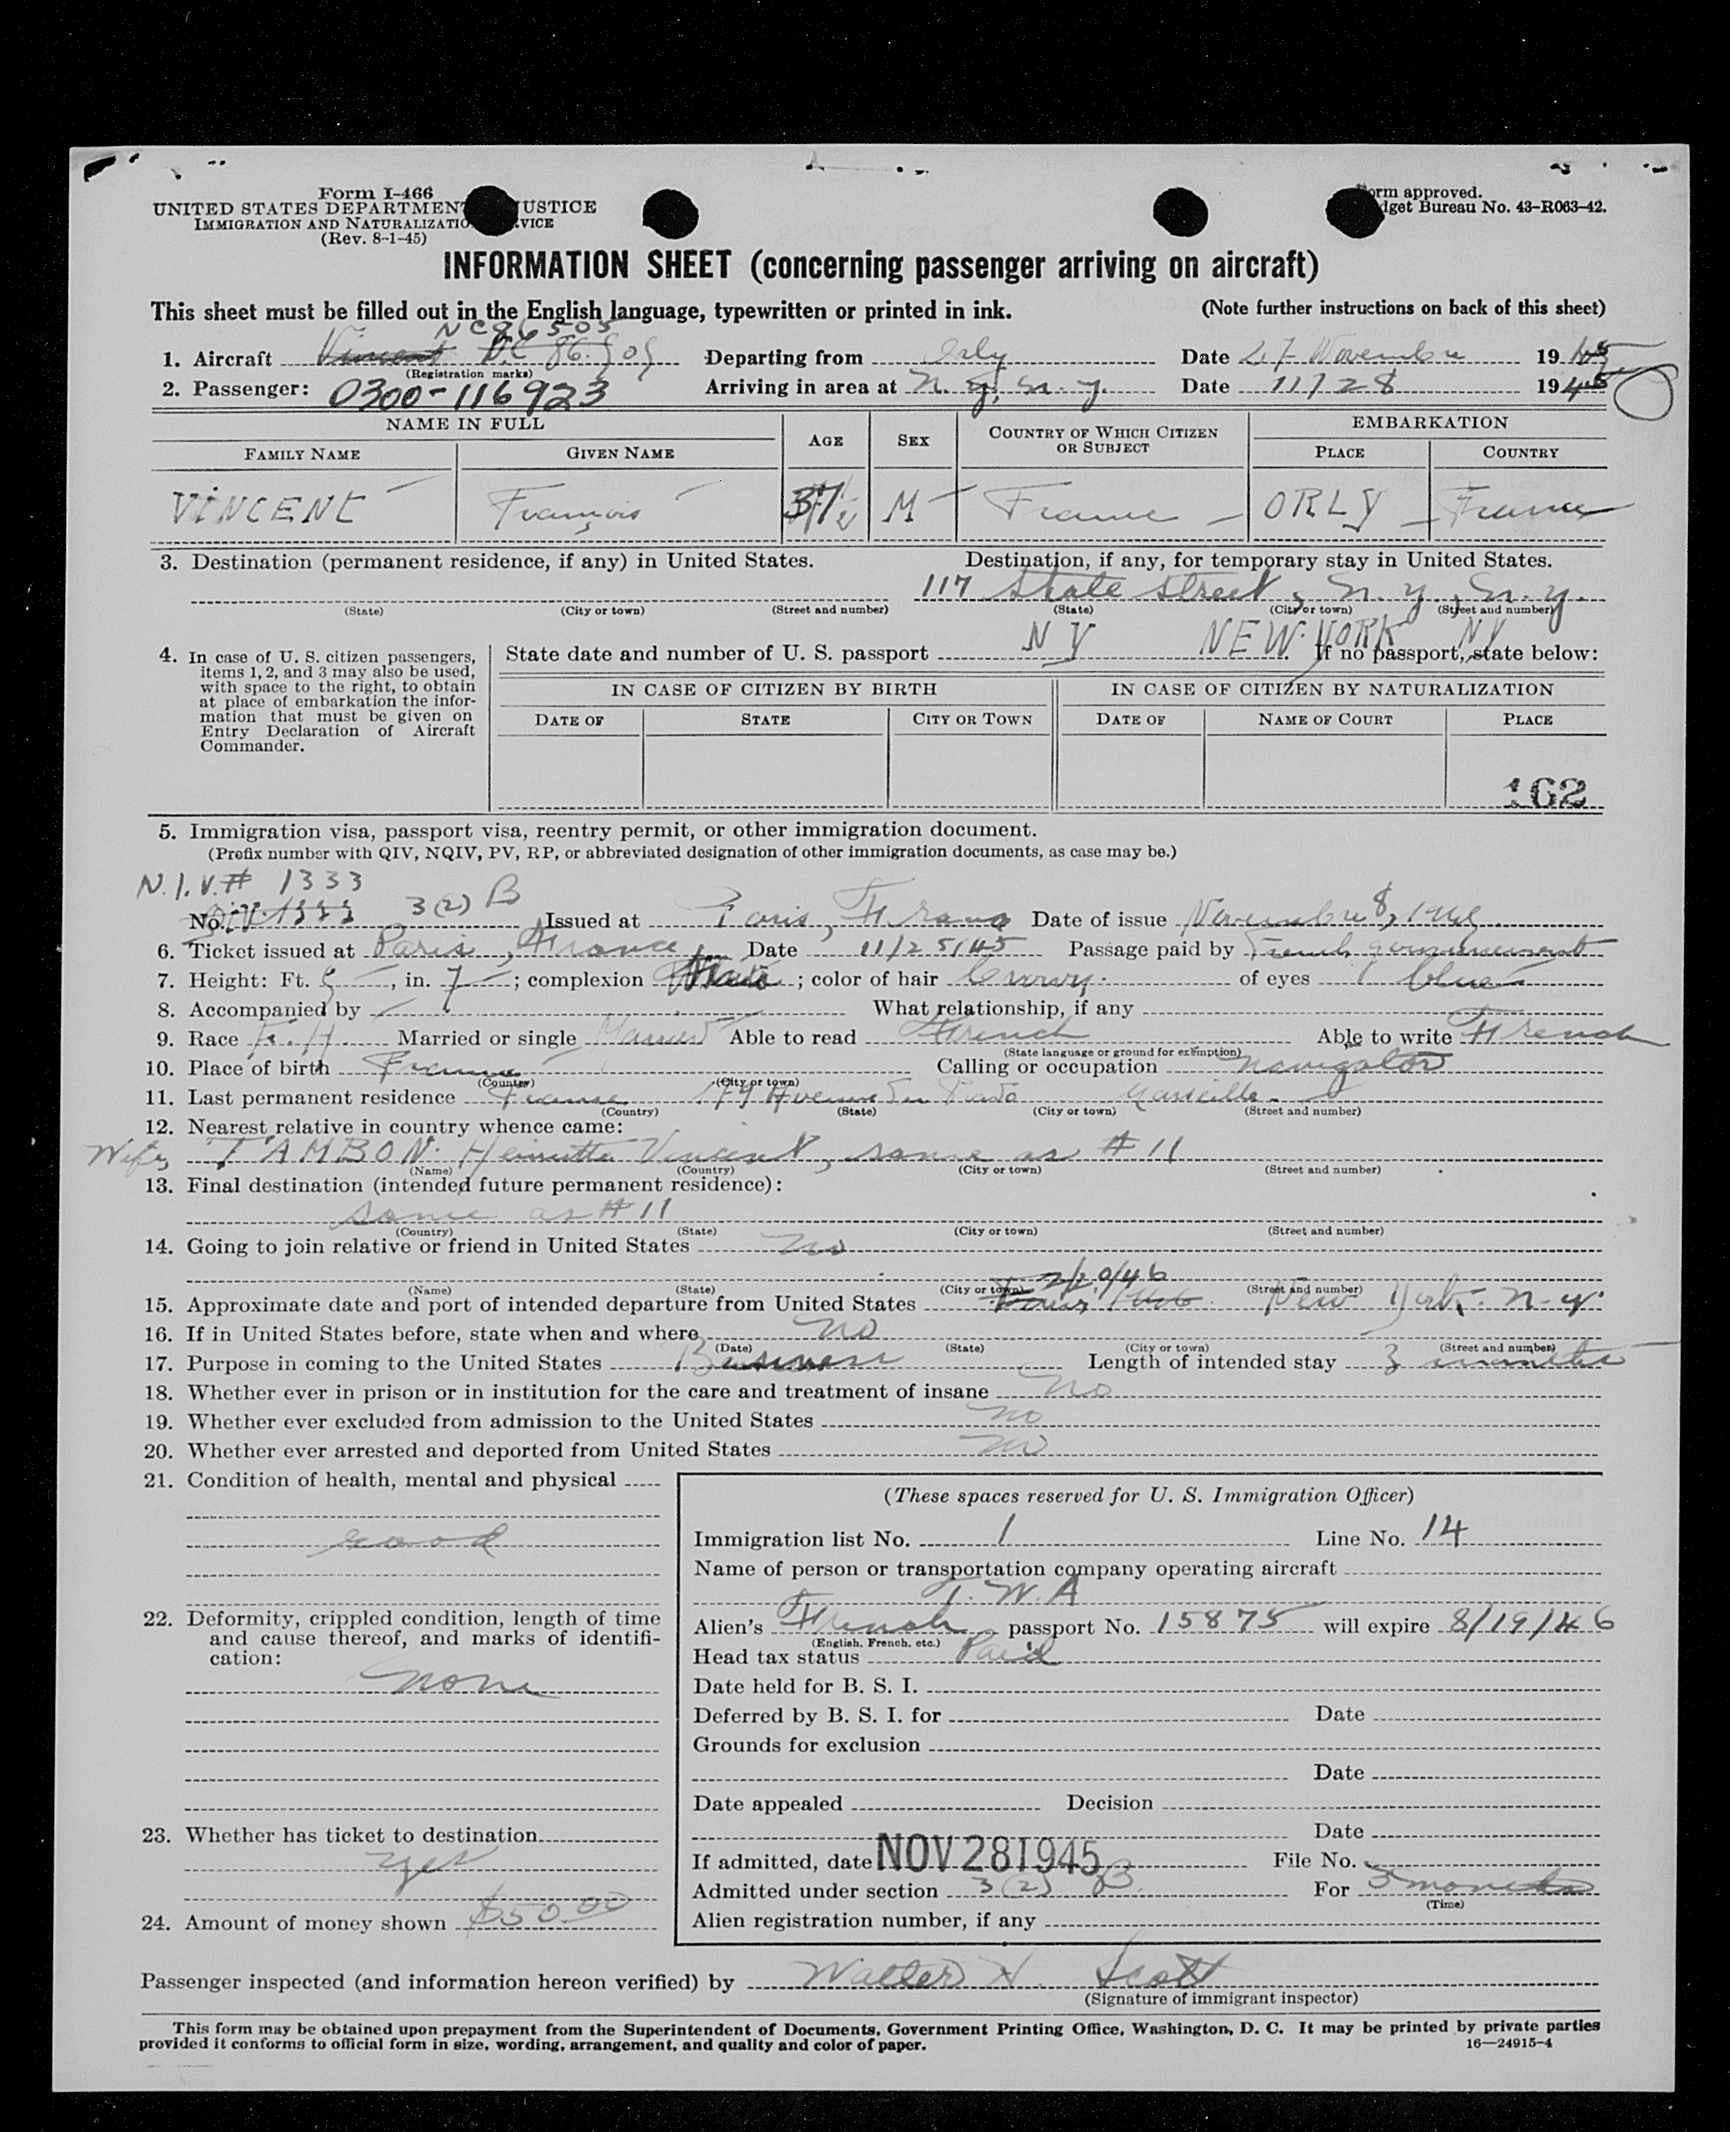 Form I-466
UNITED STATES DEPARTMENT JUSTICE
IMMIGRATION AND NATURALIZATIO VICE
(Rev. 8-1-45)
orm approved.
dget Bureau No. 43-R063-42.
INFORMATION SHEET (concerning passenger arriving on aircraft)
This sheet must be filled out in the English language, typewritten or printed in ink. (Note further instructions on back of this sheet)
NC86505
1. Aircraft Vincent DC 86.505 Departing from Orly Date 27 Novembre 1945
(Registration marks)
2. Passenger: 0300-116923 Arriving in area at N.Y., N.Y. Date 11/28 1945
NAME IN FULL AGE SEX COUNTRY OF WHICH CITIZEN OR SUBJECT EMBARKATION
FAMILY NAME GIVEN NAME PLACE COUNTRY
VINCENT François 37 M France ORLY France
3. Destination (permanent residence, if any) in United States. Destination, if any, for temporary stay in United States.
117 State Street, N.Y., N.Y.
(State) (City or town) (Street and number) (State) (City or town) (Street and number)
NY NEW YORK NY
4. In case of U. S. citizen passengers, items 1, 2, and 3 may also be used, with space to the right, to obtain at place of embarkation the information that must be given on Entry Declaration of Aircraft Commander.
State date and number of U. S. passport If no passport, state below:
IN CASE OF CITIZEN BY BIRTH IN CASE OF CITIZEN BY NATURALIZATION
DATE OF STATE CITY OR TOWN DATE OF NAME OF COURT PLACE
162
5. Immigration visa, passport visa, reentry permit, or other immigration document.
(Prefix number with QIV, NQIV, PV, RP, or abbreviated designation of other immigration documents, as case may be.)
N.I.V.# 1333
No. 1333 3(2) B Issued at Paris, France Date of issue Novembre 8, 1945
6. Ticket issued at Paris, France Date 11/25/45 Passage paid by French government
7. Height: Ft. 5, in. 7; complexion ; color of hair of eyes blue
8. Accompanied by What relationship, if any
9. Race Fr. H. Married or single Married Able to read French Able to write French
(State language or ground for exemption)
10. Place of birth France Calling or occupation navigator
(Country) (City or town)
11. Last permanent residence France 179 Avenue du Prado Marseille
(Country) (State) (City or town) (Street and number)
12. Nearest relative in country whence came:
Wife, TAMBON. Henriette Vincent, same as #11
(Name) (Country) (City or town) (Street and number)
13. Final destination (intended future permanent residence):
same as #11
(Country) (State) (City or town) (Street and number)
14. Going to join relative or friend in United States no
(Name) (State) (City or town) (Street and number)
2/20/46
15. Approximate date and port of intended departure from United States 1946 New York. N.Y.
16. If in United States before, state when and where no
(Date) (State) (City or town) (Street and number)
17. Purpose in coming to the United States Business Length of intended stay 3 months
18. Whether ever in prison or in institution for the care and treatment of insane no
19. Whether ever excluded from admission to the United States no
20. Whether ever arrested and deported from United States no
21. Condition of health, mental and physical
good
22. Deformity, crippled condition, length of time and cause thereof, and marks of identification:
none
23. Whether has ticket to destination
yes
24. Amount of money shown $50.00
(These spaces reserved for U. S. Immigration Officer)
Immigration list No. 1 Line No. 14
Name of person or transportation company operating aircraft
T.W.A
Alien's French passport No. 15875 will expire 8/19/46
(English, French, etc.)
Head tax status Paid
Date held for B. S. I.
Deferred by B. S. I. for Date
Grounds for exclusion
Date
Date appealed Decision
Date
If admitted, date NOV 28 1945 File No.
Admitted under section 3(2) B. For 3 months
(Time)
Alien registration number, if any
Passenger inspected (and information hereon verified) by Walter H. Scott
(Signature of immigrant inspector)
This form may be obtained upon prepayment from the Superintendent of Documents, Government Printing Office, Washington, D. C. It may be printed by private parties
provided it conforms to official form in size, wording, arrangement, and quality and color of paper. 16—24915-4